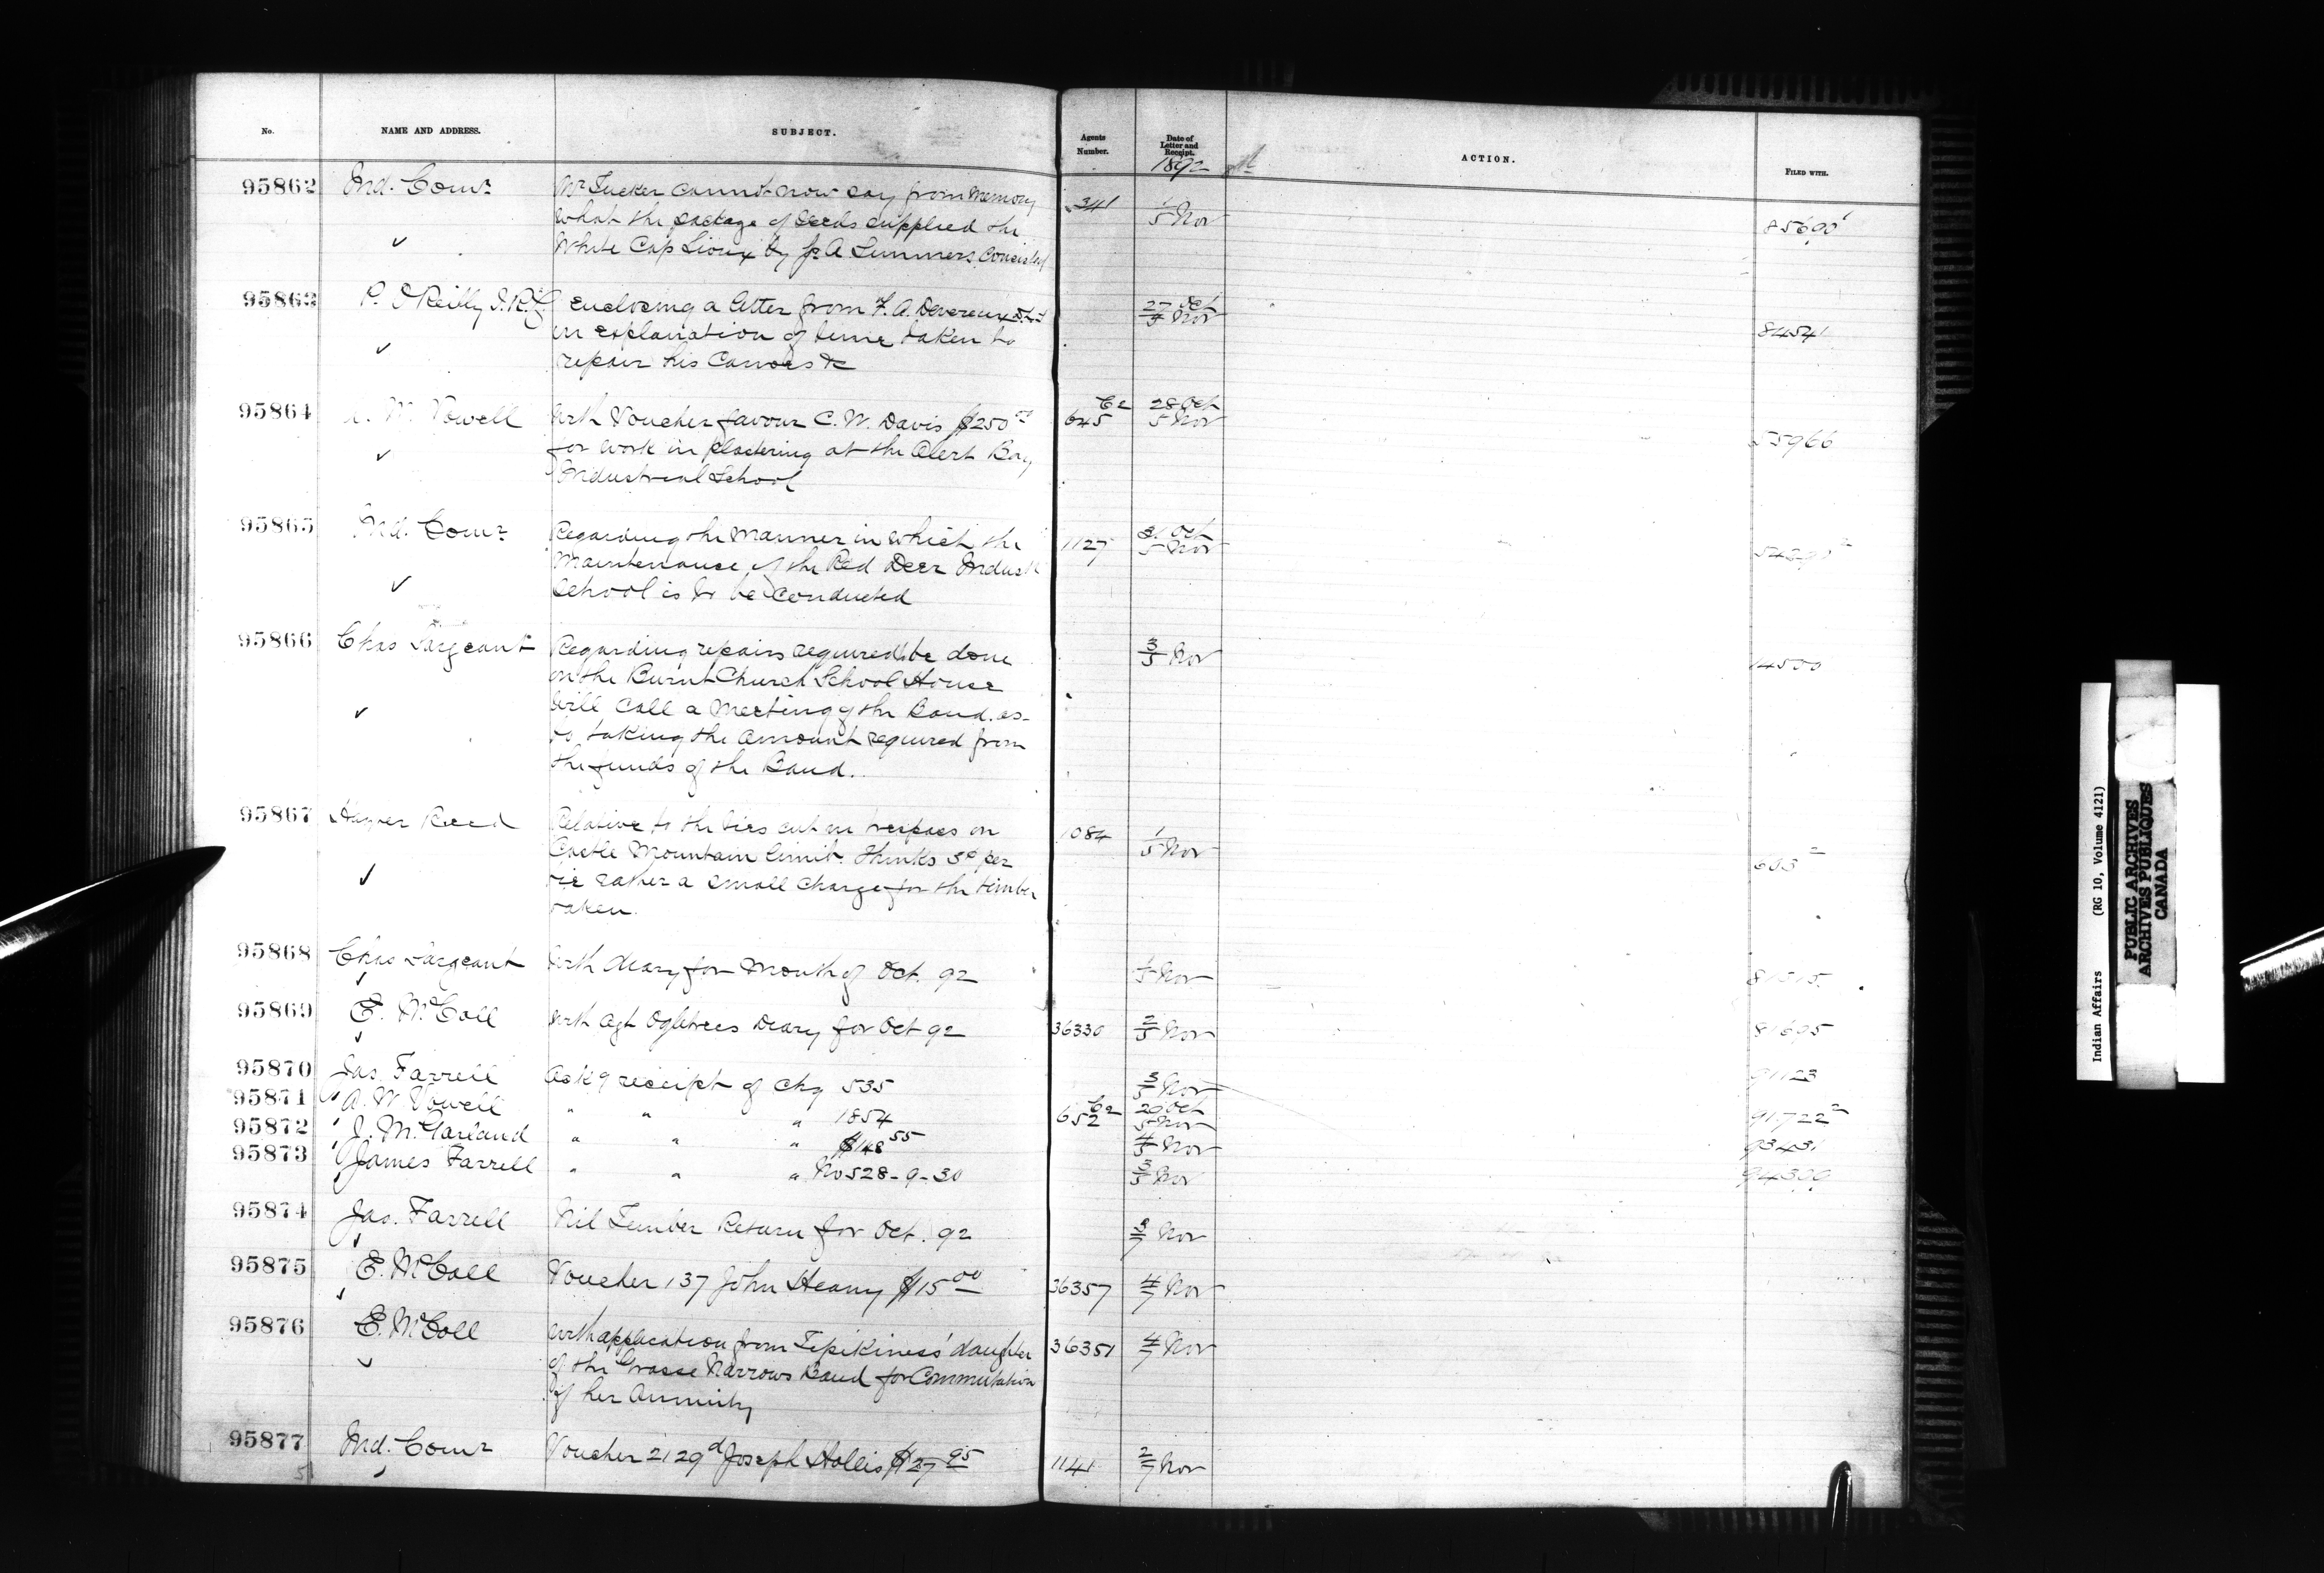 No.
NAME AND ADDRESS.
SUBJECT.
Agents
Number.
Date of
Letter and
Receipt.
1892
ACTION.
FILED WITH.
95862 Ind. Comr Mr Tucker cannot now say from memory 341 1/5 Nov 85690
what the package of seeds supplied the
White Cap Sioux by A Summers consisted
95863 P. O'Reilly I.R.C. Enclosing a letter from F. A. Devereux 27 Oct/5 Nov 84541
in explanation of time taken to
repair his Canoes &c
95864 A. W. Vowell With Voucher favour C. W. Davis $250.00 C2 645 28 Oct/5 Nov 55966
for work in plastering at the Alert Bay
Industrial School
95865 Ind. Comr Regarding the manner in which the 1127 31 Oct/5 Nov
Maintenance of the Red Deer Indust
School is to be conducted
95866 Chas Sargeant Regarding repairs required to be done 3/5 Nov 14500
on the Burnt Church School House
Will call a meeting of the Band as
to taking the amount required from
the funds of the Band.
95867 Hayter Reed Relative to the ties cut in trespass on 1084 1/5 Nov
Castle Mountain limit. Thinks 3c per
tie rather a small charge for the timber
taken.
95868 Chas Sargeant With diary for month of Oct. 92 1/5 Nov 81515
95869 E. McColl With Agt Ogletrees Diary for Oct 92 36330 2/5 Nov 81695
95870 Jas. Farrell Ackg receipt of chq 535 3/5 Nov 91123
95871 A. W. Vowell " " " 1854 C2 652 20 Oct/5 Nov 91722 2
95872 J. McGarland " " " $148.55 4/5 Nov 93431
95873 James Farrell " " " No 528-9-30 3/5 Nov 94300
95874 Jas. Farrell Nil Timber Return for Oct. 92 3/7 Nov
95875 E. McColl Voucher 137 John Heany $15.00 36357 4/7 Nov
95876 E. McColl With application from Tepikiness' daughter 36351 4/7 Nov
of the Grasse Narrows Band for Commutation
of her Annuity
95877 Ind. Comr Voucher 2129d Joseph Hollis $27.95 1141 2/7 Nov
Indian Affairs (RG 10, Volume 4121)
PUBLIC ARCHIVES
ARCHIVES PUBLIQUES
CANADA